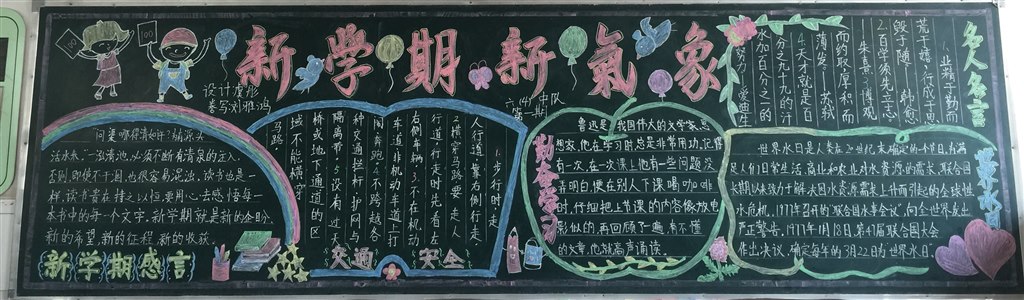 新学期新氣象
100
100
六(4)中队
第一期
"问渠哪得清如许?为有源头
活水来。"一泓清池,必须不断有清泉的注入,
否则,即使不干涸,也很容易混浊。读书也是一
样,读书贵在持之以恒,要用心去感悟每一
本书中的每一个文字。新学期就是新的企盼、
新的希望、新的征程、新的收获。
新学期感言
1.步行时,走
人行道,靠右侧行走。
2.横穿马路要走人
行道,行走时先看左
右侧车辆。3.不在机动
车道、非机动车道上打
闹、奔跑。4.不跨越各
种交通拦杆、护网与
隔离带。5.没有过街天
桥或地下通道的区
域不能横穿
马路
交通 安全
鲁迅是我国伟大的文学家思
想家,他在学习时总是非常用功,记得
有一次,在一次课上他有一些问题没
弄明白,便在别人下课喝
时,仔细把上节课的内容像放电
影似的再回顾了遍,有不懂
的文章,他就高声诵读。
勤奋学习
名人名言
1.业精于勤而
荒于嬉,行成于思
毁于随。 韩愈
2.百学须先立志
朱熹 3.博观
而约取,厚积而
薄发。 苏轼
4.天才就是百
分之九十九的汗
水加百分之一的
努力。爱迪生
世界水日
世界水日是人类在20世纪末确定的一个节日。为满
足人们日常生活、商业和农业对水资源的需求,联合国
长期以来致力于解决因水资源需求上升而引起的全球性
水危机。1977年召开的"联合国水事会议",向全世界发出
严正警告。1977年1月18日,第47届联合国大会
作出决议,确定每年的3月22日为世界水日。